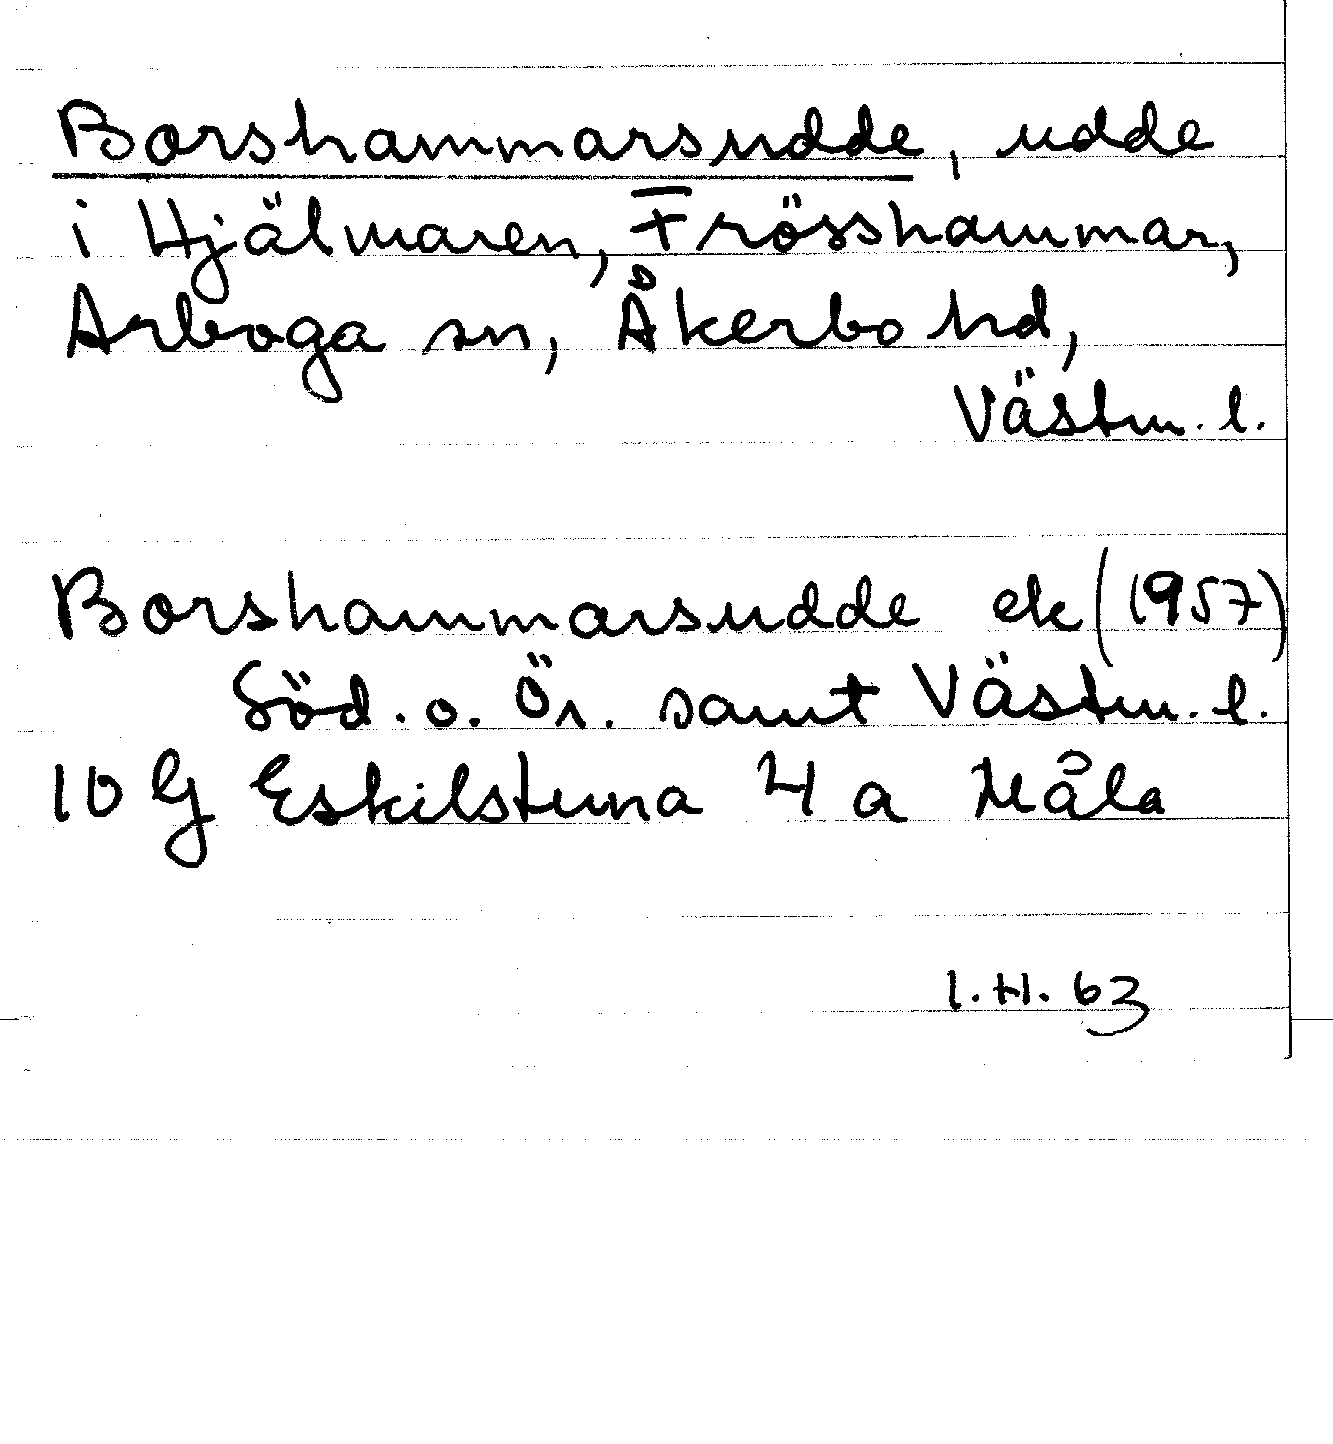 Borshammarsudde, udde
i Hjälmaren, Frösshammar,
Arboga sn, Åkerbo hd,
Västm. l.
Borshammarsudde ek (1957)
Söd. o. Ör. samt Västm. l.
10 G Eskilstuna 4 a Måla
I.H. 63